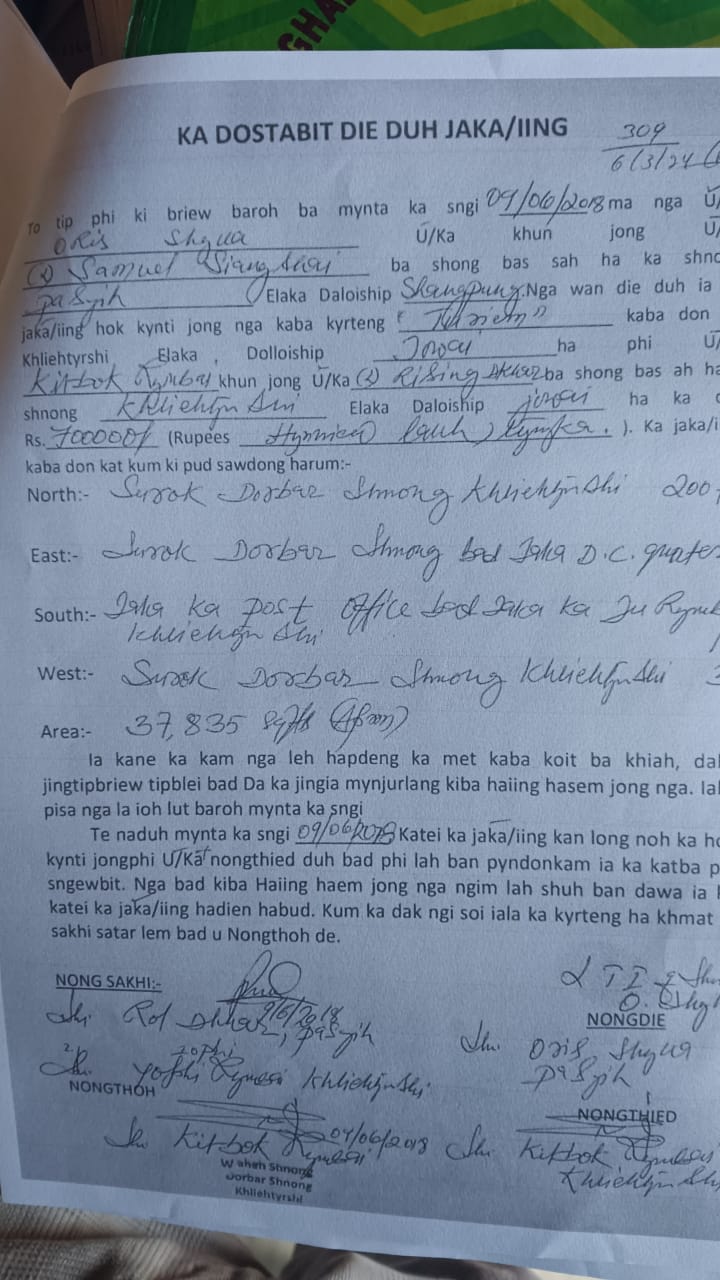 GHA
KA DOSTABIT DIE DUH JAKA/IING
309
6/3/24
To tip phi ki briew baroh ba mynta ka sngi 09/06/2018 ma nga Ū/
Oris Shylla Ū/Ka khun jong Ū/
(L) Samuel Siangshai ba shong bas sah ha ka shno
Pasyih Elaka Daloiship Shangpung. Nga wan die duh ia
jaka/iing hok kynti jong nga kaba kyrteng kaba don
Khliehtyrshi Elaka , Dolloiship Jowai ha phi Ū/
Kitbok Rymbai khun jong Ū/Ka (L) Rising Dkhar ba shong bas ah ha
shnong Khliehtyrshi Elaka Daloiship Jowai ha ka
Rs. 700000/ (Rupees Hynniew lauh, ). Ka jaka/i
kaba don kat kum ki pud sawdong harum:-
North:- Surok Dorbar Shnong Khliehtyrshi 200
East:- Surok Dorbar Shnong bad Jaka D.C. quater
South:- Jaka ka post office bad Jaka ka
Khliehtyrshi
West:- Surok Dorbar Shnong Khliehtyrshi
Area:- 37,835 Sqft
Ia kane ka kam nga leh hapdeng ka met kaba koit ba khiah, da
jingtipbriew tipblei bad Da ka jingia mynjurlang kiba haiing hasem jong nga. Ia
pisa nga la ioh lut baroh mynta ka sngi
Te naduh mynta ka sngi 09/06/2018 Katei ka jaka/iing kan long noh ka ho
kynti jongphi Ū/Ka nongthied duh bad phi lah ban pyndonkam ia ka katba p
sngewbit. Nga bad kiba Haiing haem jong nga ngim lah shuh ban dawa ia
katei ka jaka/iing hadien habud. Kum ka dak ngi soi iala ka kyrteng ha khmat
sakhi satar lem bad u Nongthoh de.
NONG SAKHI:-
9/6/2018
L T I
O. Shyl
NONGDIE
Shri. Rol Dkhar, Pasyih
Shri. Oris Shylla
Pasyih
2. Shri. Yophi Khliehtyrshi
NONGTHOH
NONGTHIED
Shri Kitbok Rymbai 09/06/2018
Shri Kitbok Rymbai
Khliehtyrshi
Waheh Shnong
Dorbar Shnong
Khliehtyrshi